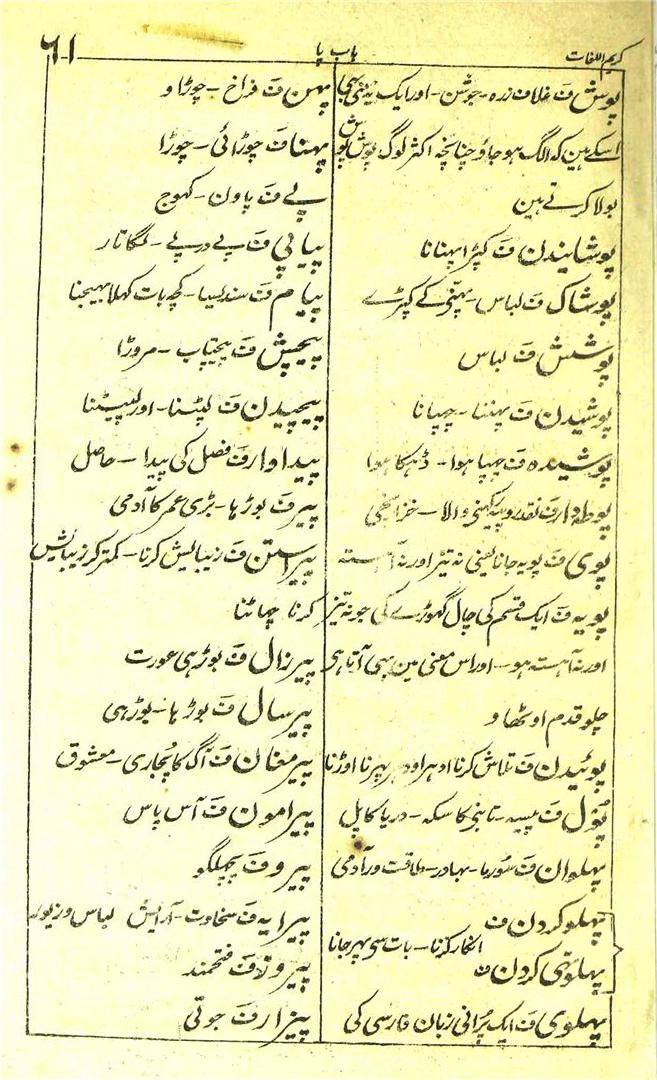 کریم اللغات
باب پا
٦١
پوش ف غلاف زرہ - جوشن - اور ایک معنی یہی
اسکے ہین کہ الگ ہو جاؤ چنانچہ اکثر لوگ پوش پوش
بولا کرتے ہین
پوشانیدن ف کپڑا پہنانا
پوشاک ف لباس - پہننی کے کپڑے
پوشش ف لباس
پوشیدن ف پہننا - چھپانا
پوشیدہ ف چھپا ہوا - ڈھکا ہوا
پوطہ دار ف نقد روپیہ رکھنی والا - خزانچی
پوی ف پویہ جانا یعنی نہ تیز اور نہ آہستہ
پویہ ف ایک قسم کی چال گھوڑے کی جو نہ تیز
اور نہ آہستہ ہو - اور اس معنی مین بہی آتا ہی
چلو قدم اوٹھاو
پوئیدن ف تلاش کرنا ادہر اودہر پہرنا اوڑنا
پول ف پیسہ - تانبی کا سکہ - دریا کا پل
پہلوان ف سورما - بہادر - طاقت ور آدمی
پہلو کردن ف
پہلوتہی کردن ف
انکار کرنا - بات سی پہر جانا
پہلوی ف ایک پرانی زبان فارسی کی
پہن ف فراخ - چوڑاو
پہنا ف چوڑائی - چوڑا
پے ف پاون - کہوج
پیاپی ف پے درپے - لگاتار
پیام ف سندیسا - کچہ بات کہلا بہیجنا
پیچش ف پیچتاب - مروڑا
پیچیدن ف لپٹنا - اور لپیٹنا
پیداوار ف فصل کی پیدا - حاصل
پیر ف بوڑہا - بڑی عمر کا آدمی
پیراستن ف زیبایش کرنا - کمتر کر زیبایش
کرنا چہاٹنا
پیرزال ف بوڑہی عورت
پیرسال ف بوڑہا - بوڑہی
پیرمغان ف آگ کا پجاری - معشوق
پیرامون ف آس پاس
پیرو ف پچھلگو
پیرایہ ف سخاوت - آرایش لباس و زیور
پیروز ف فتحمند
پیزار ف جوتی